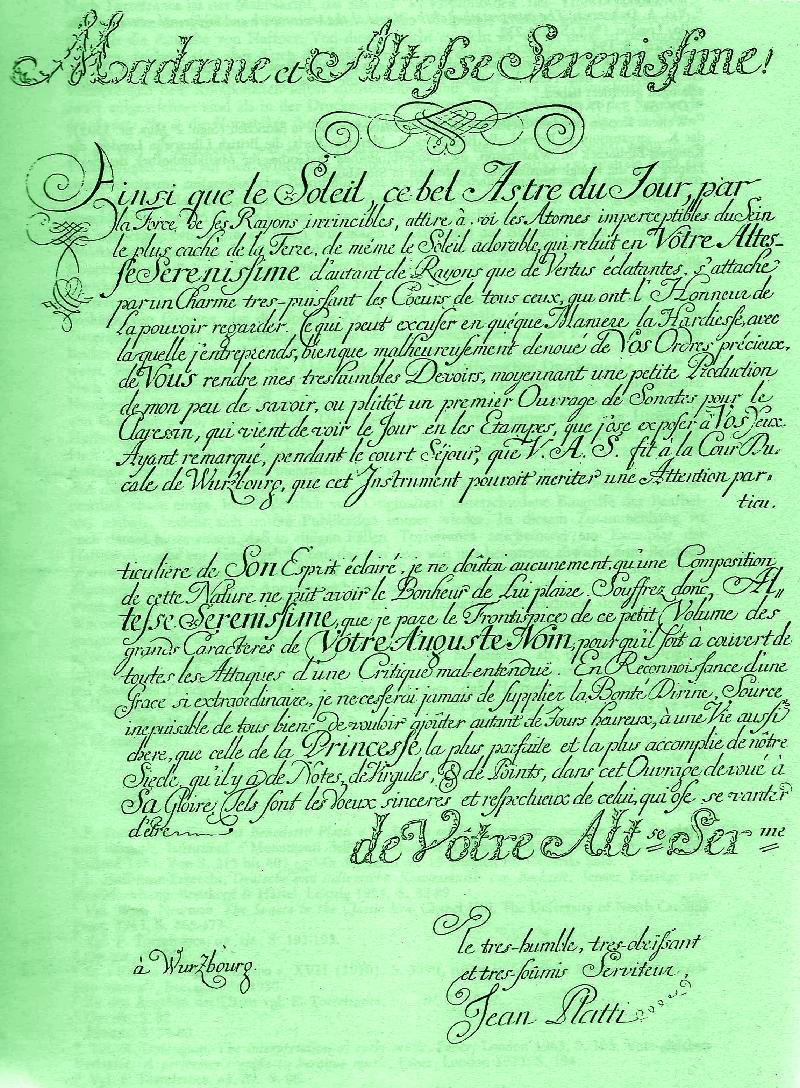 Madame et Altesse Serenissime!
Ainsi que le Soleil, ce bel Astre du Jour, par
la Force de ses Rayons invincibles, attire à soi les Atomes imperceptibles du Sein
le plus caché de la Terre, de même le Soleil adorable, qui reluit en Vôtre Altes-
se Serenissime d'autant de Rayons que de Vertus éclatantes, s'attache
par un Charme tres-puissant les Coeurs de tous ceux, qui ont l'Honneur de
la pouvoir regarder. Ce qui peut excuser en quéque Maniere la Hardiesse, avec
la quelle j'entreprends, bienque malheureusement denoué de Vos Ordres précieux,
de Vous rendre mes treshumbles Devoirs, moyennant une petite Production
de mon peu de savoir, ou plûtôt un premier Ouvrage de Sonates pour le
Clavessin, qui vient de voir le Jour en les Etampes, que j'ose exposer à Vos Yeux.
Ayant remarqué, pendant le court Séjour, que V. A. S. fit à la Cour Du-
cale de Wurzbourg, que cet Instrument pouvoit meriter une Attention par-
ticu.
ticuliére de Son Esprit éclairé, je ne doûtai aucunement, qu'une Composition
de cette Nature ne pût avoir le Bonheur de Lui plaire. Souffrez donc, Al-
tesse Serenissime, que je pare le Frontispice de ce petit Volume des
grands Caractéres de Vôtre Auguste Nom, pour qu'il soit à couvert de
toutes les Attaques d'une Critique mal-entenduë. En Reconnoissance d'une
Grace si extraordinaire, je ne cesserai jamais de supplier la Bonté Divine, Source
inepuisable de tous biens, de vouloir ajoûter autant de Jours heureux, à une Vie aussi
chere, que celle de la Princesse la plus parfaite et la plus accomplie de nôtre
Siécle, qu'il y a de Notes, de Virgules, & de Points, dans cet Ouvrage devoué à
Sa Gloire; Tels sont les voeux sinceres et respectueux de celui, qui ose se vanter
d'être
de Vôtre Alt.se Ser.me
le tres-humble, tres-obeïssant
à Wurzbourg.
et tres-soumis Serviteur,
Jean Platti